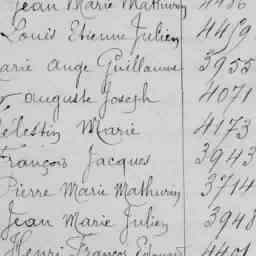 Jean Marie Mathurin 4486
Louis Etienne Julien 4459
Marie Ange Guillaume 3955
Auguste Joseph 4071
Célestin Marie 4173
François Jacques 3943
Pierre Marie Mathurin 3714
Jean Marie Julien 3948
Henri François Edouard 4401